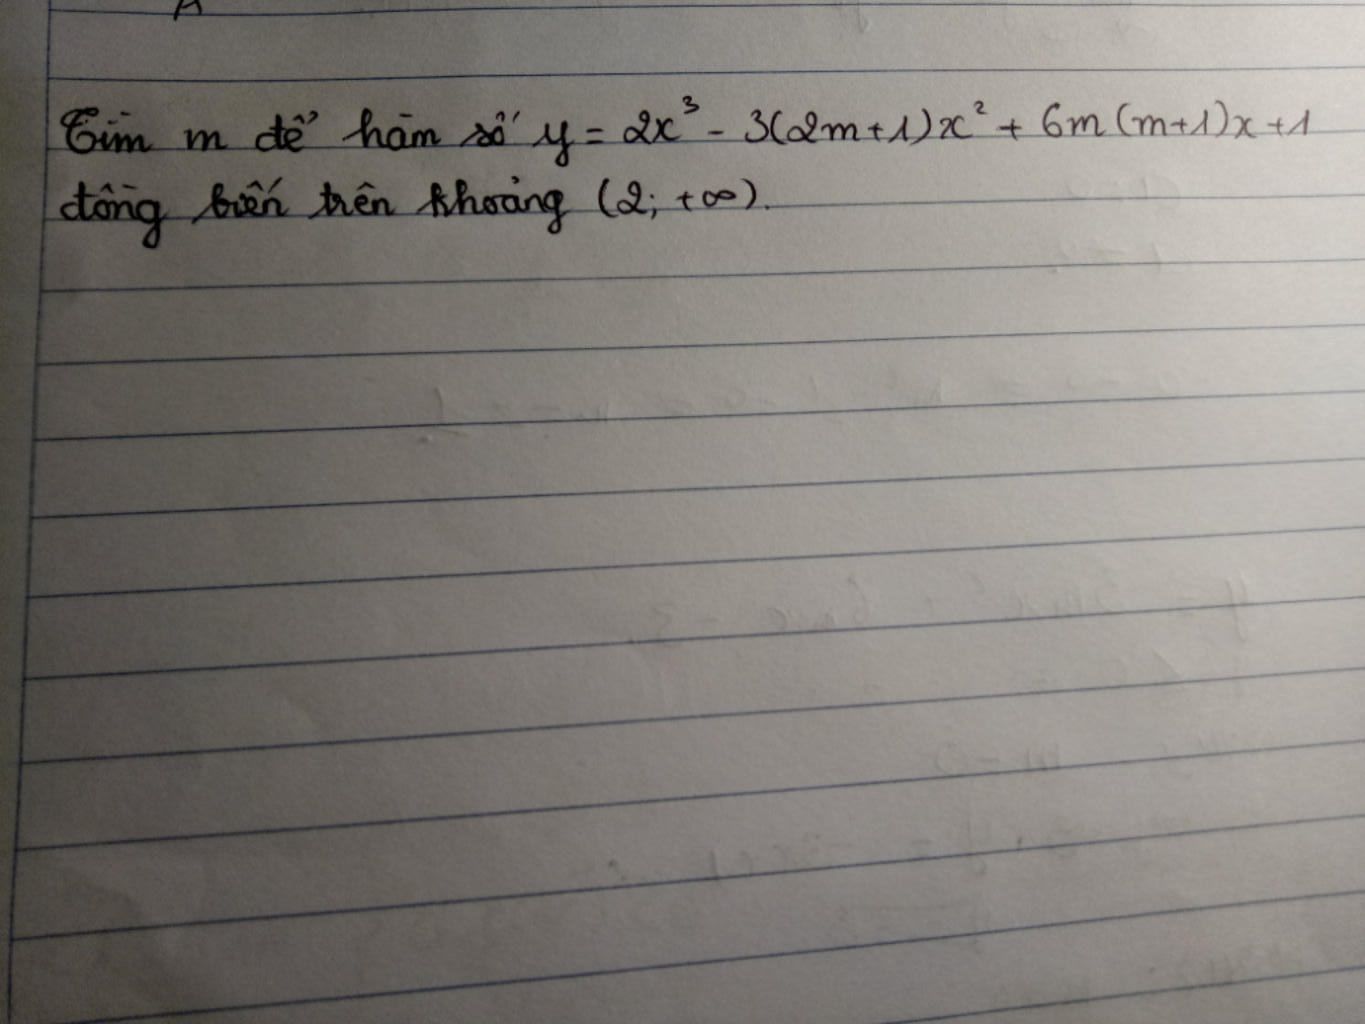 Tìm m để hàm số y = 2x³ - 3(2m+1)x² + 6m(m+1)x+1
đồng biến trên khoảng (2; +∞).